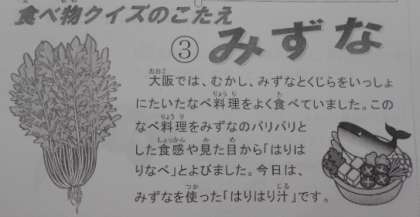 食べ物クイズのこたえ
③みずな
大阪では、むかし、みずなとくじらをいっしょ
にたいたなべ料理をよく食べていました。この
なべ料理をみずなのバリバリと
した食感や見た目から「はりは
りなべ」とよびました。今日は、
みずなを使った「はりはり汁」です。